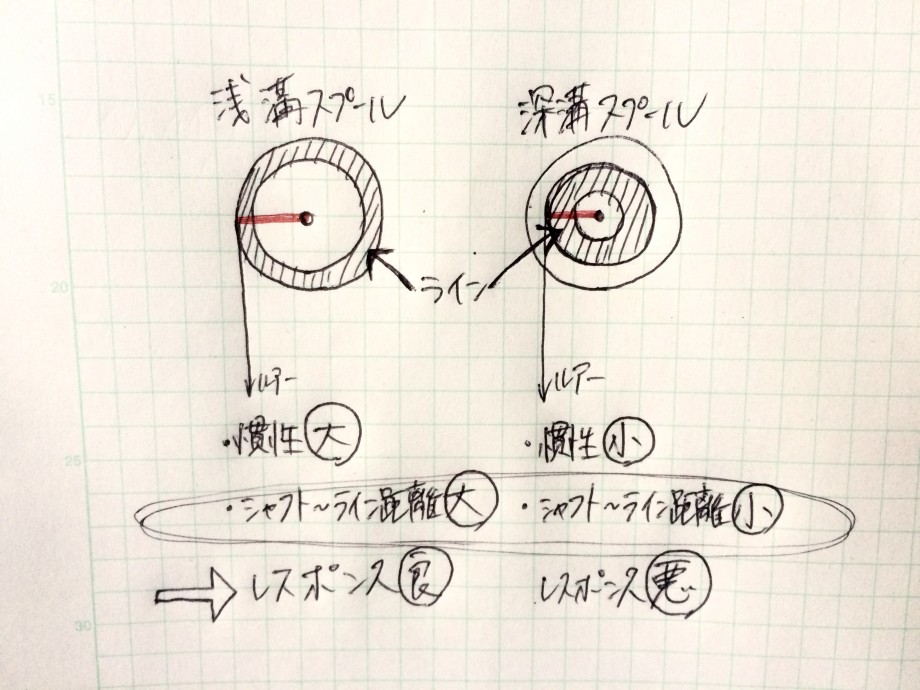 浅溝スプール 深溝スプール
15
20
ライン
ルアー ルアー
・慣性大 ・慣性小
25
・シャフト～ライン距離大 ・シャフト～ライン距離小
レスポンス良 レスポンス悪
30